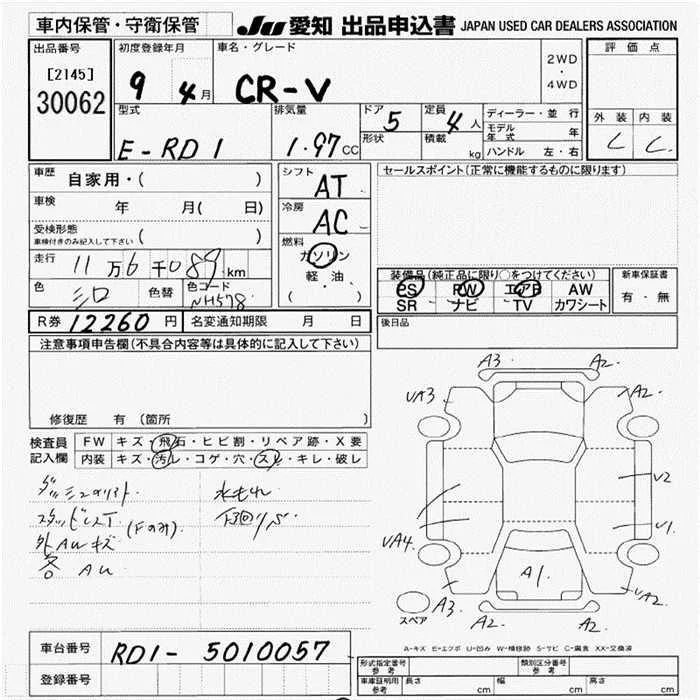 車内保管・守衛保管
JU 愛知 出品申込書 JAPAN USED CAR DEALERS ASSOCIATION
出品番号
[2145]
30062
初度登録年月
9 4月
車名・グレード
CR-V
2WD
・
4WD
評価点
外装 内装
型式
E-RD1
排気量
1.97CC
ドア 5
形状
定員 4人
積載 kg
ディーラー・並行
モデル年式 年
ハンドル 左・右
車歴 自家用・( )
車検 年 月( 日)
受検形態 ( )
車検付きのみ記入して下さい
走行 11万6千089km
色 シロ 色替 色コード NH578
シフト AT
冷房 AC
燃料
ガソリン
軽・油
( )
セールスポイント(正常に機能するものに限ります)
装備品(純正品に限り○をつけてください)
PS PW エアB AW
SR ナビ TV カワシート
新車保証書
有・無
R券 12260円 名変通知期限 月 日
後日品
注意事項申告欄(不具合内容等は具体的に記入して下さい)
修復歴 有 (箇所 )
検査員 FW キズ・飛石・ヒビ割・リペア跡・X要
記入欄 内装 キズ・汚レ・コゲ・穴・スレ・キレ・破レ
(Fのみ)
A3 A2
UA3 A2
U2
U1
UA4
A1
A3 UA2
A2 A2
スペア
A-キズ E-エクボ U-凹ミ W-補修跡 S-サビ C-腐食 XX-交換済
車台番号 RD1-5010057
登録番号
形式指定番号 参考 類別区分番号 参考
車庫証明用 参考 長さ cm 幅 cm 高さ cm